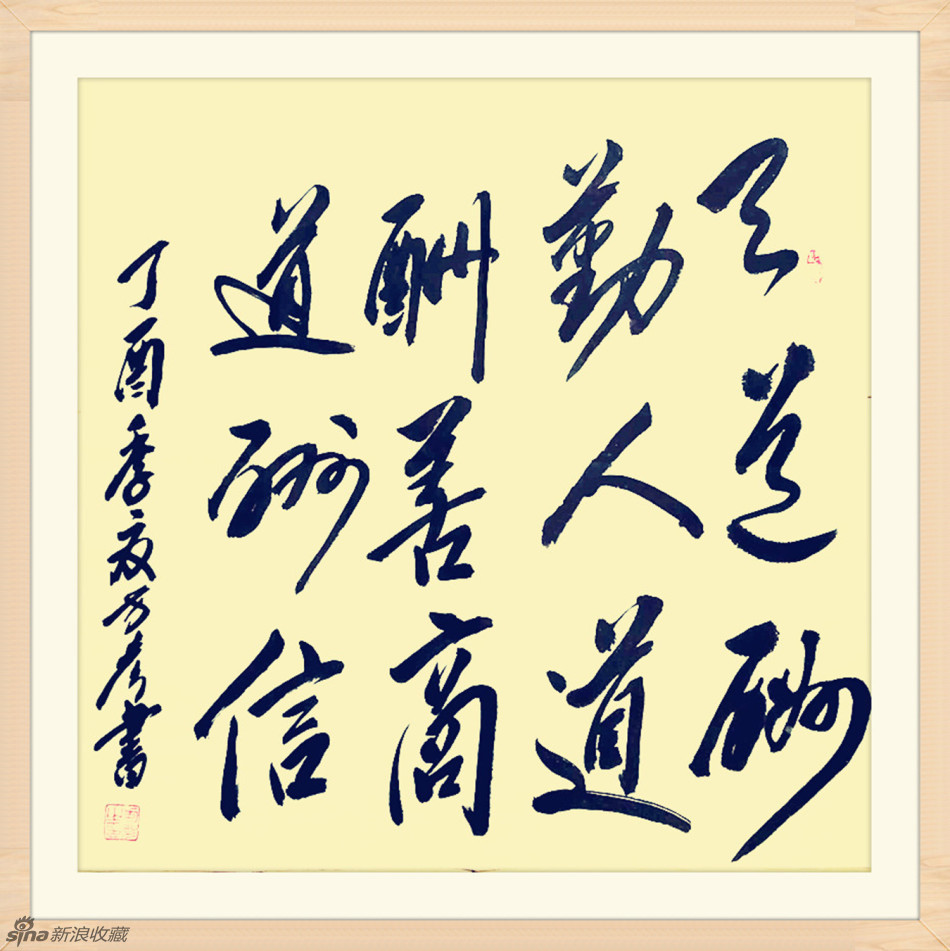 天道酬
勤人道
酬善商
道酬信
丁酉季夏方孝書
sina新浪收藏